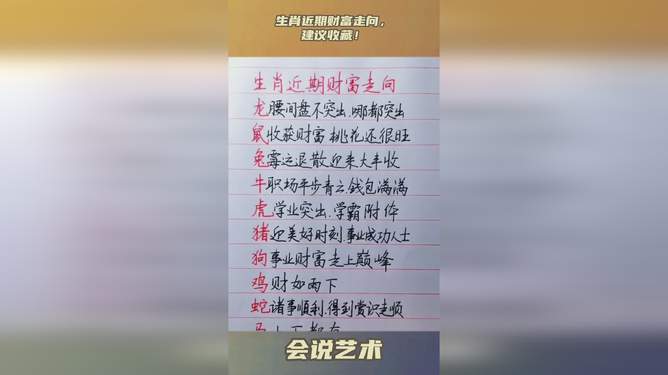 生肖近期财富走向，
建议收藏！
生肖近期财富走向
龙腰间盘不突出.哪都突出
鼠收获财富桃花还很旺
兔霉运退散迎来大丰收
牛职场平步青云.钱包满满
虎学业突出.学霸附体
猪迎美好时刻事业成功人士
狗事业财富走上巅峰
鸡财如雨下
蛇诸事顺利.得到赏识走顺
会说艺术